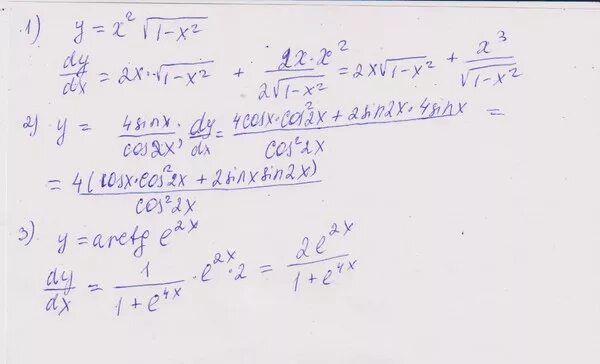 1) y = x² √(1-x²)
dy/dx = 2x·√(1-x²) + 2x·x²/(2√(1-x²)) = 2x√(1-x²) + x³/√(1-x²)
2) y = 4sinx/cos2x; dy/dx = (4cosx·cos²2x + 2sin2x·4sinx)/cos²2x =
= 4(cosx·cos²2x + 2sinxsin2x)/cos²2x
3) y = arctg e^(2x)
dy/dx = 1/(1+e^(4x)) · e^(2x)·2 = 2e^(2x)/(1+e^(4x))